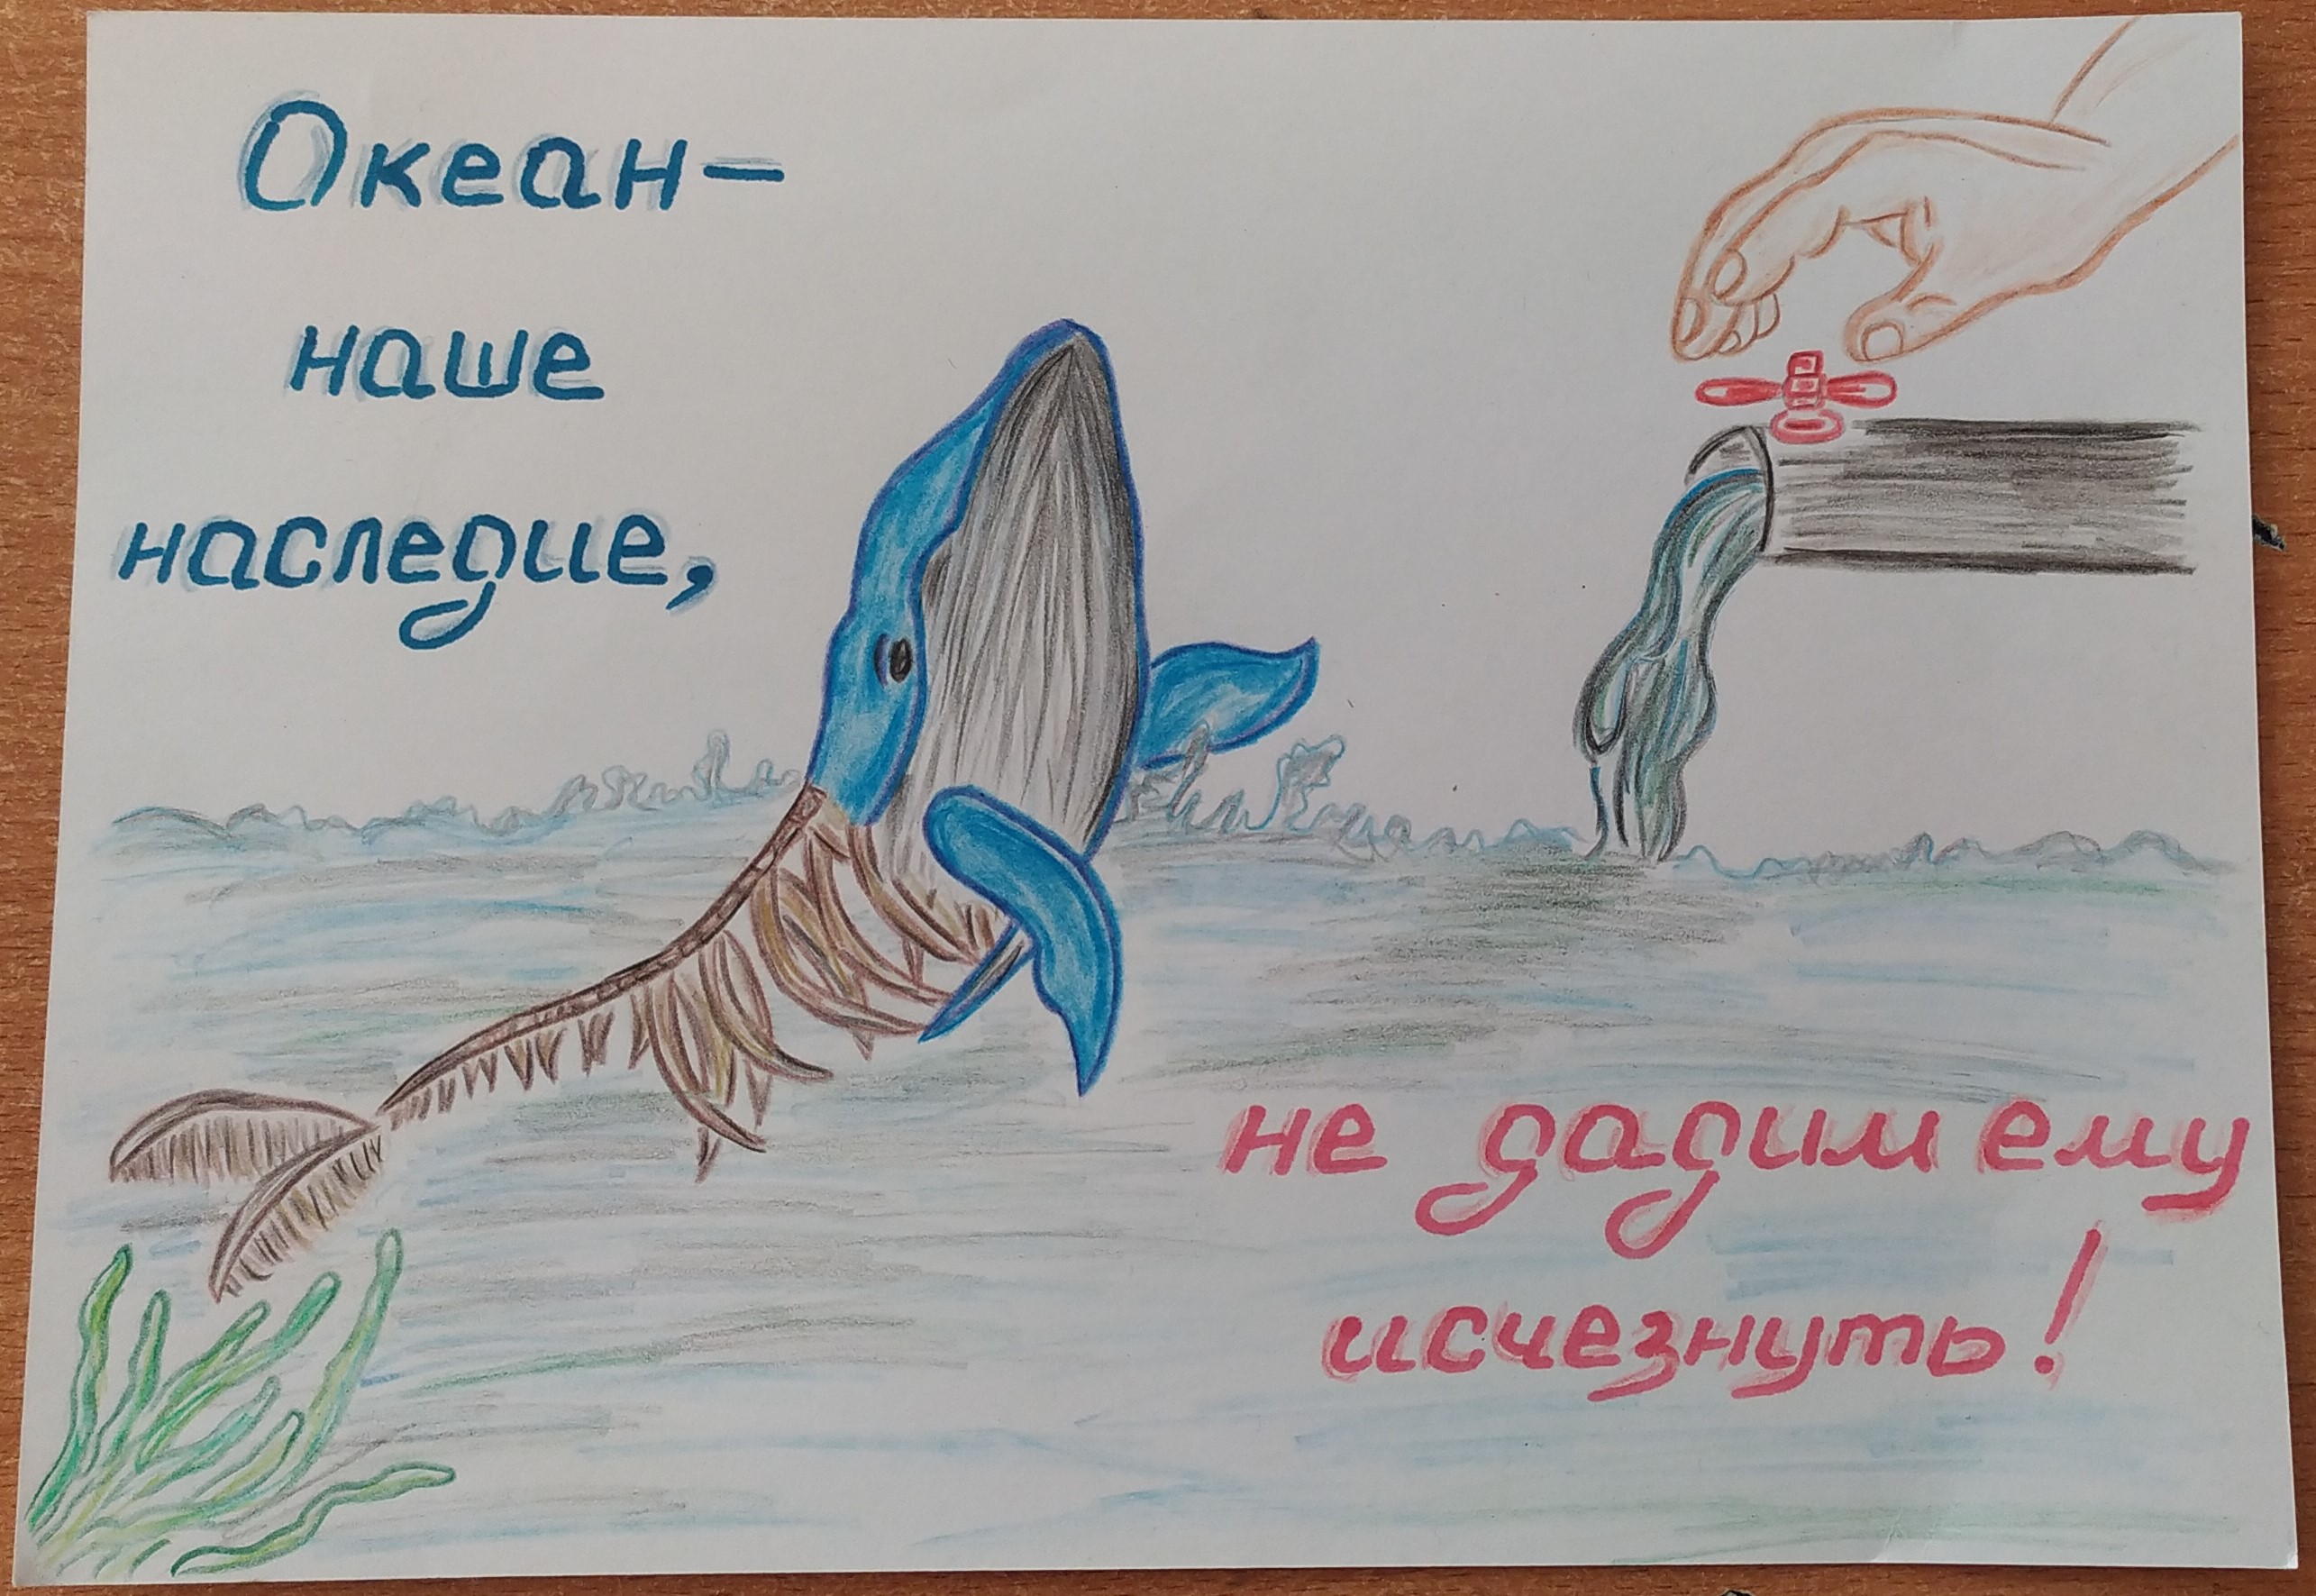 Океан-
наше
наследие,
не дадим ему
исчезнуть!